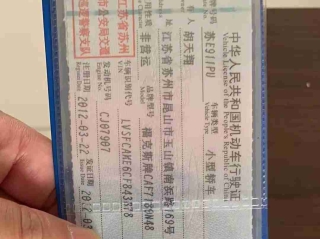 中华人民共和国机动车行驶证
Vehicle License of the People's Republic of China
号牌号码 苏E911PU 车辆类型 小型轿车
Vehicle Type
人 胡天翔
址 江苏省苏州市昆山市玉山镇南浜路169号
使用性质 非营运 品牌型号 福克斯牌CAF7180N48
Model
江苏省苏州 车辆识别代号 LVSFCAME6CF843078
VIN
市公安局交通 发动机号码 CJ07907
Engine No.
巡逻警察支队 注册日期 2012-03-22 发证日期 2012
Register Date Issue Date